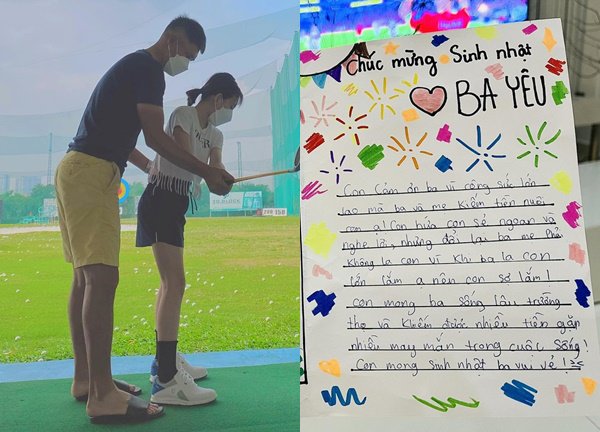 Chúc mừng Sinh nhật
BA YÊU
Con Cảm ơn ba vì công sức lớn
lao mà ba và mẹ kiếm tiền nuôi
con ạ! Con hứa con sẽ ngoan và
nghe lời, nhưng đổi lại ba mẹ Phải
không la con vì khi ba la con
lớn lắm ạ nên con sợ lắm!
Con mong ba sống lâu trường
thọ và kiếm được nhiều tiền gặp
nhiều may mắn trong cuộc sống!
Con mong sinh nhật ba vui vẻ!